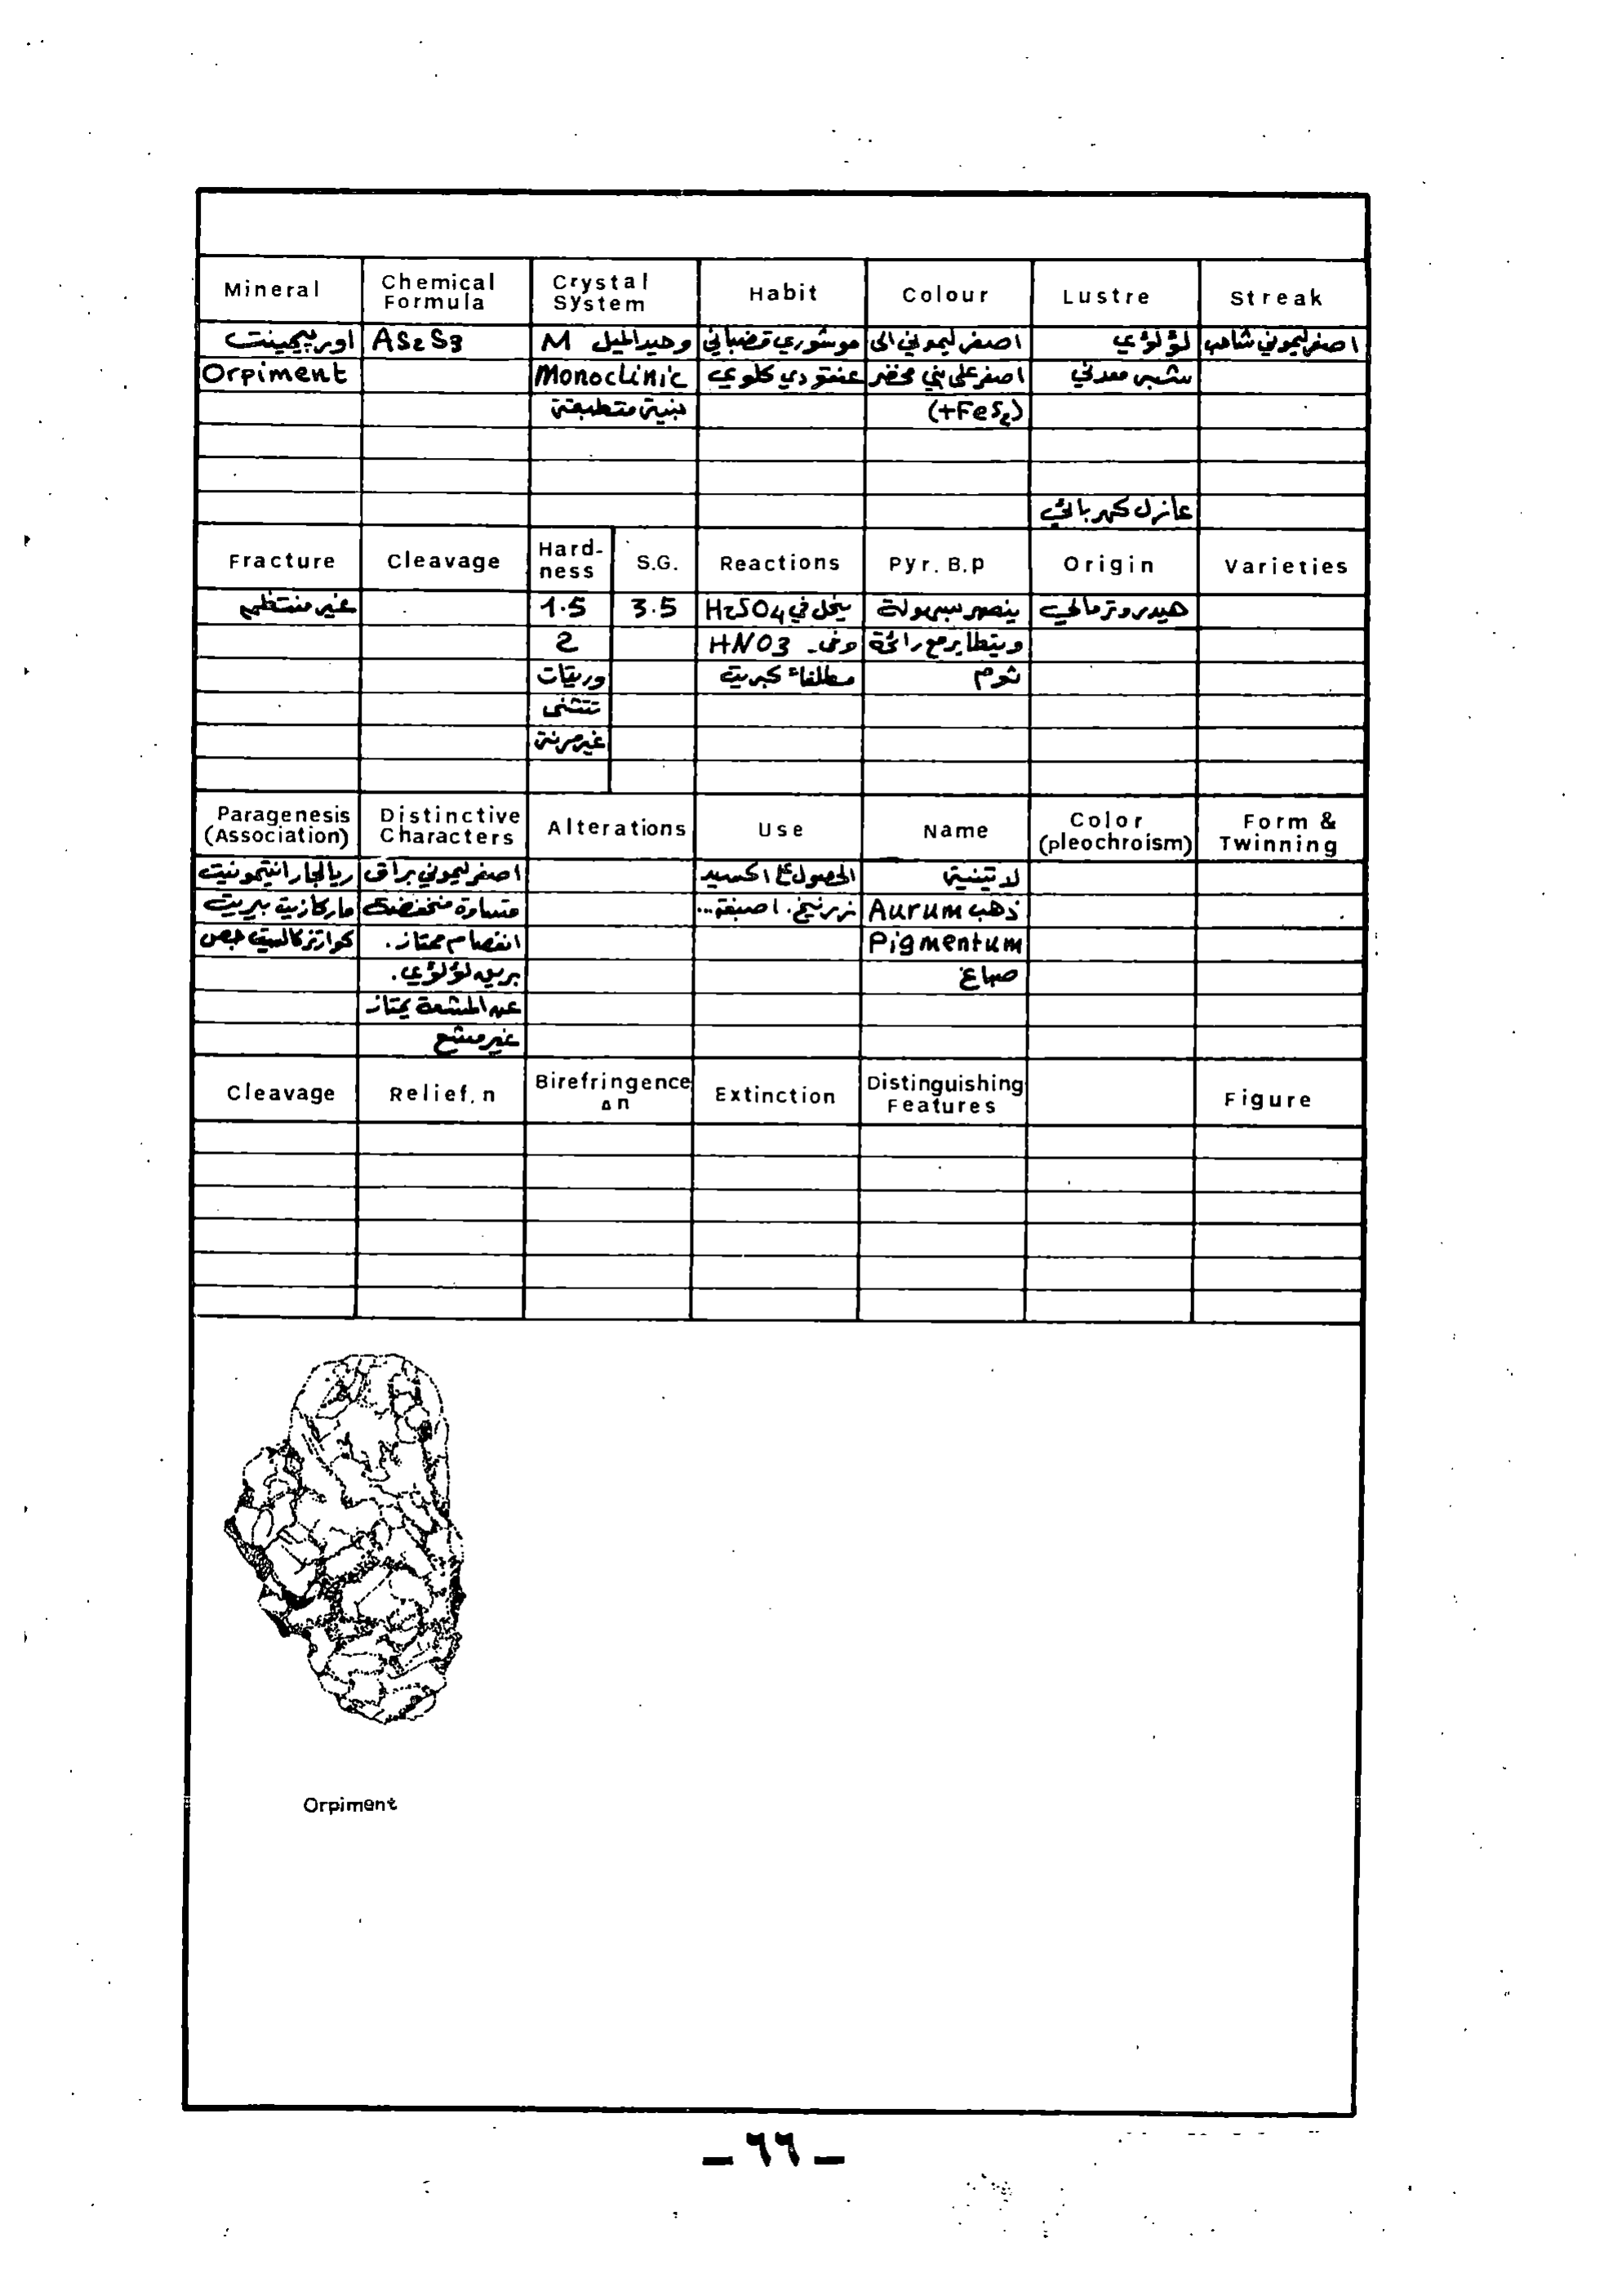 Mineral
Chemical Formula
Crystal System
Habit
Colour
Lustre
Streak
اوربيمينت
As2S3
وحيد الميل M
موشوري قضباني
اصفر ليموني الى
لؤلؤي
اصفر ليموني شاحب
Orpiment
Monoclinic
عنقودي كلوي
اصفر على بني مخضر
شبه معدني
بنية متطبقة
(+FeS2)
عازل كهربائي
Fracture
Cleavage
Hard-ness
S.G.
Reactions
Pyr. B.p
Origin
Varieties
غير منتظم
1.5
3.5
ينحل في H2SO4
ينصهر بسهولة
هيدروترمالي
2
وفي HNO3
ويتطاير مع رائحة
وريقات
كبريت
ثوم
تتثنى
غير مرنة
Paragenesis (Association)
Distinctive Characters
Alterations
Use
Name
Color (pleochroism)
Form & Twinning
ريالجار انتيمونيت
اصفر ليموني براق
الحصول على اكسيد
لاتينية
ماركازيت بيريت
قساوة منخفضة
زرنيخ. اصبغة...
ذهب Aurum
كوارتز كالسيت جبص
انفصام ممتاز.
Pigmentum
بريق لؤلؤي.
صباغ
يمتاز
غير مشع
Cleavage
Relief. n
Birefringence Δn
Extinction
Distinguishing Features
Figure
Orpiment
– ٦٦ –